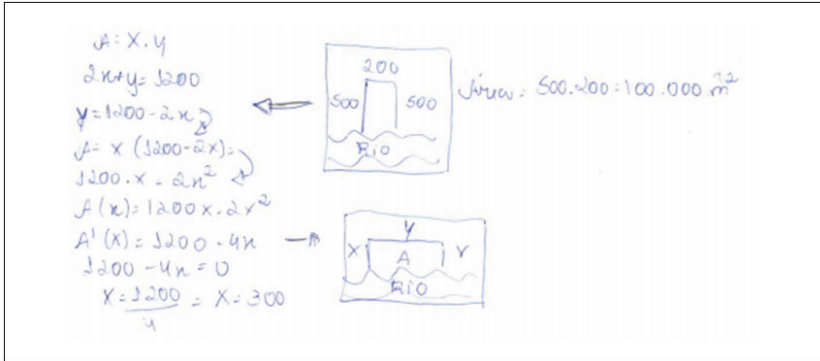 A = X.y
2x+y=1200
y=1200-2x
A= x (1200-2x)=
1200.x - 2x²
A(x)=1200x-2x²
A'(x)=1200-4x
1200-4x=0
X=1200/4 = X=300
200
500
500
RiO
Área= 500.200=100.000 m²
y
X
A
RiO